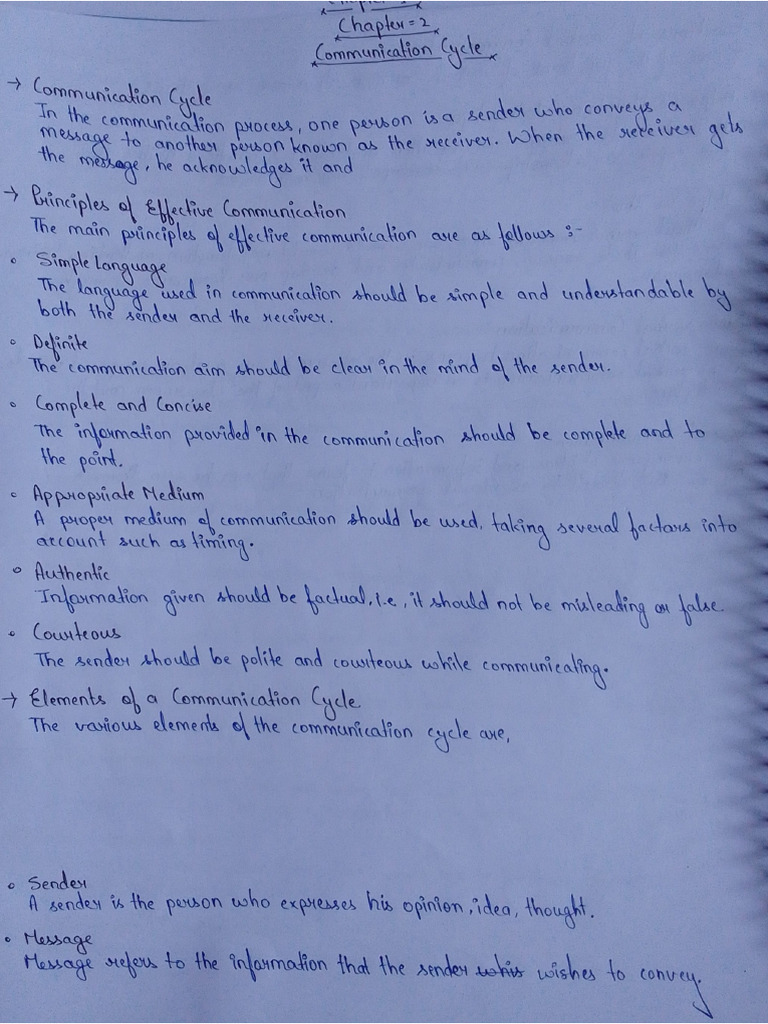 Chapter = 2
Communication Cycle
→ Communication Cycle
In the communication process, one person is a sender who conveys a
message to another person known as the receiver. When the receiver gets
the message, he acknowledges it and
→ Principles of Effective Communication
The main principles of effective communication are as follows :-
• Simple Language
The language used in communication should be simple and understandable by
both the sender and the receiver.
• Definite
The communication aim should be clear in the mind of the sender.
• Complete and Concise
The information provided in the communication should be complete and to
the point.
• Appropriate Medium
A proper medium of communication should be used, taking several factors into
account such as timing.
• Authentic
Information given should be factual, i.e., it should not be misleading or false.
• Courteous
The sender should be polite and courteous while communicating.
→ Elements of a Communication Cycle
The various elements of the communication cycle are,
• Sender
A sender is the person who expresses his opinion, idea, thought.
• Message
Message refers to the information that the sender wishes to convey.